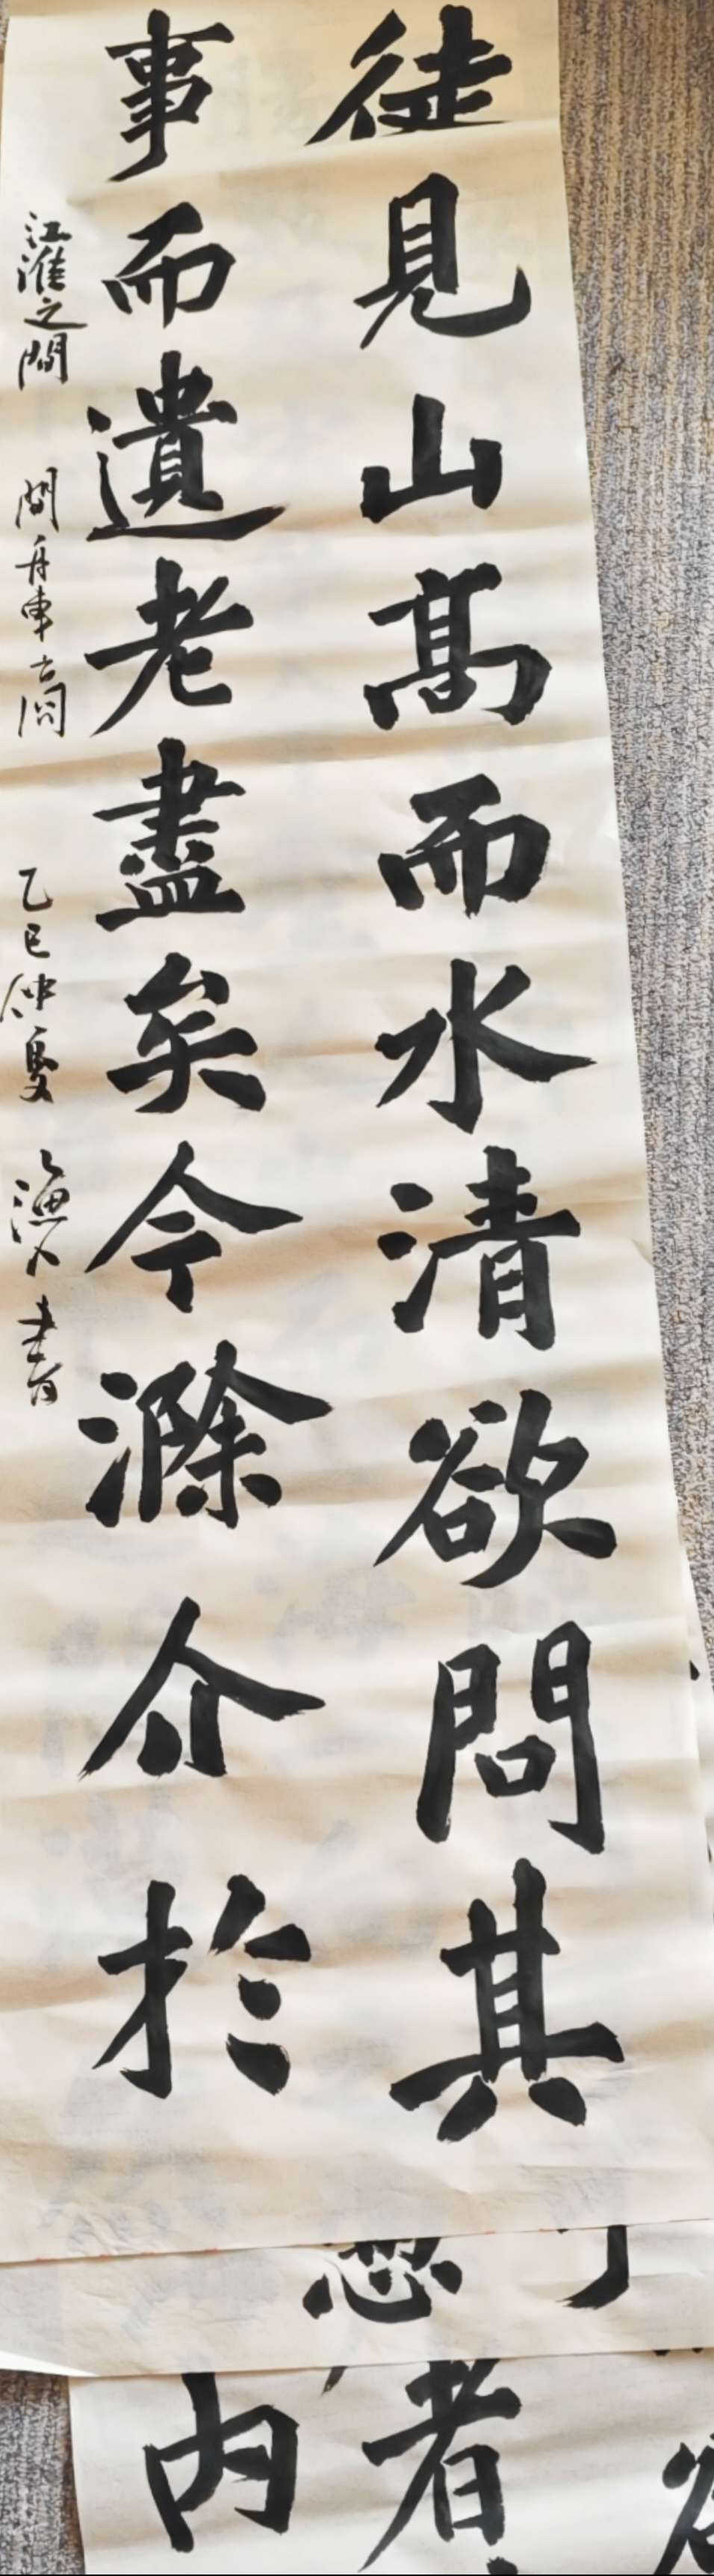 徒見山高而水清欲問其
事而遺老盡矣今滁介於
江淮之間 間舟車 乙巳仲夏 漁人書
者
内